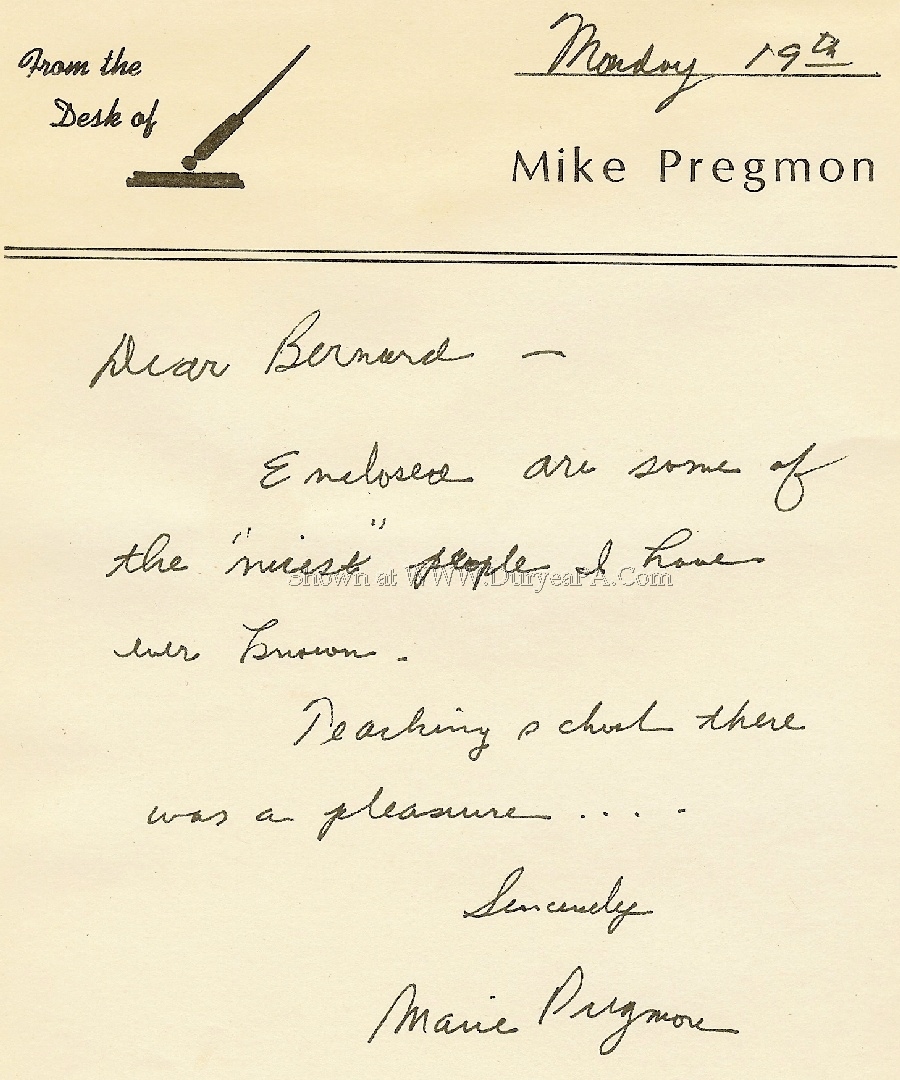 From the
Desk of
Monday 19th
Mike Pregmon
Dear Bernard —
Enclosed are some of
the "nicest" people I have
shown at WWW.DuryeaPA.Com
ever known.
Teaching school there
was a pleasure ....
Sincerely
Marie Pregmon